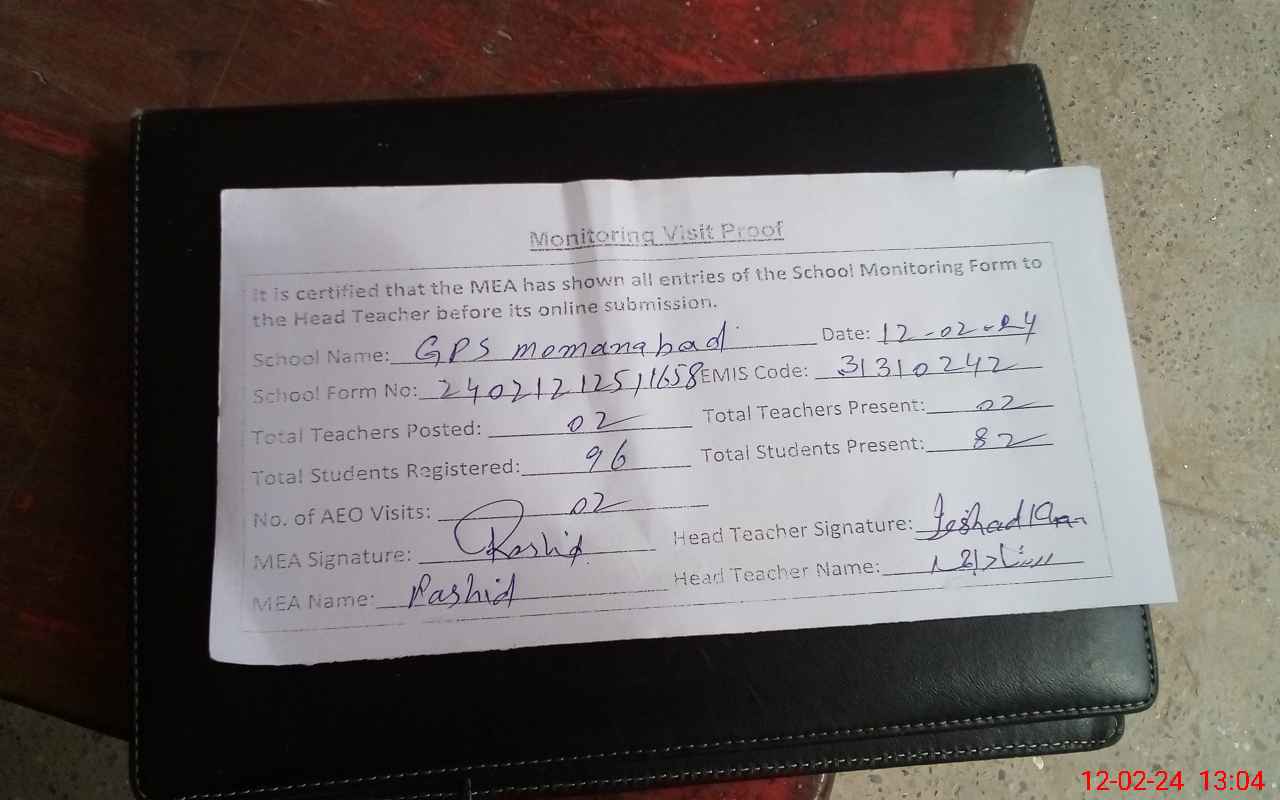 Monitoring Visit Proof
It is certified that the MEA has shown all entries of the School Monitoring Form to
the Head Teacher before its online submission.
School Name: GPS momanabad Date: 12-02-24
School Form No: 24021212511658 EMIS Code: 31310242
Total Teachers Posted: 02 Total Teachers Present: 02
Total Students Registered: 96 Total Students Present: 82
No. of AEO Visits: 02
MEA Signature: Rashid Head Teacher Signature:
MEA Name: Rashid Head Teacher Name:
12-02-24 13:04